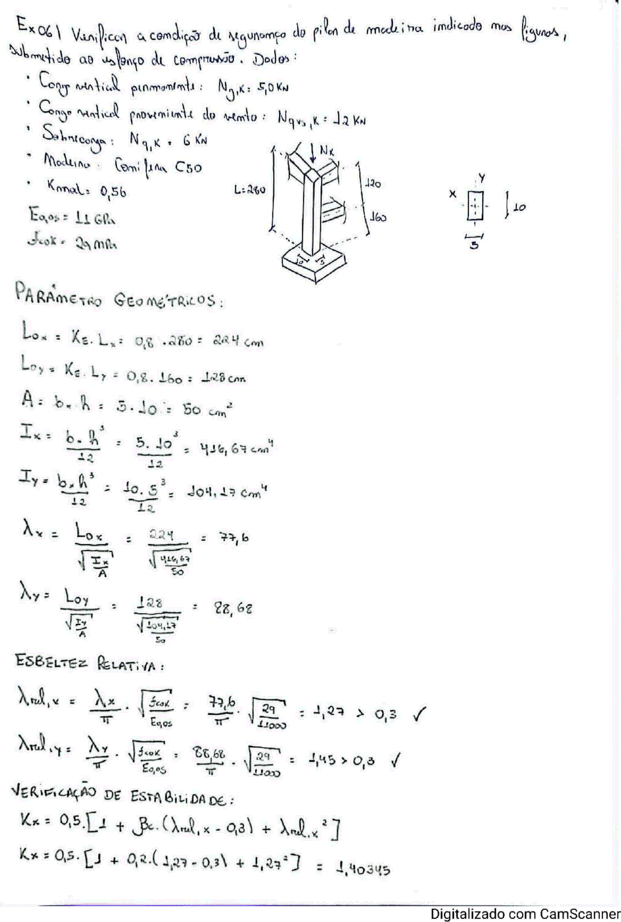 Ex 06) Verificar a condição de segurança do pilar de madeira indicado nas figuras,
submetido ao esforço de compressão. Dados:
• Carga vertical permanente: Ng,k = 5,0 KN
• Carga vertical proveniente do vento: Nqv,k = 12 KN
• Sobrecarga: Nq,k = 6 KN
• Madeira: Conífera C50
• Kmod = 0,56
E0,05 = 11 GPa
fc0k = 29 MPa
Nk
L=280
120
160
10 5
Y
X
10
5
PARÂMETRO GEOMÉTRICOS:
Lox = KE . Lx = 0,8 . 280 = 224 cm
Loy = KE . Ly = 0,8 . 160 = 128 cm
A = b . h = 5 . 10 = 50 cm²
Ix = b . h³ / 12 = 5 . 10³ / 12 = 416,67 cm⁴
Iy = b . h³ / 12 = 10 . 5³ / 12 = 104,17 cm⁴
λx = Lox / √(Ix / A) = 224 / √(416,67 / 50) = 77,6
λy = Loy / √(Iy / A) = 128 / √(104,17 / 50) = 88,68
ESBELTEZ RELATIVA:
λrel,x = λx / π . √(fc0k / E0,05) = 77,6 / π . √(29 / 11000) = 1,27 > 0,3 ✓
λrel,y = λy / π . √(fc0k / E0,05) = 88,68 / π . √(29 / 11000) = 1,45 > 0,3 ✓
VERIFICAÇÃO DE ESTABILIDADE:
Kx = 0,5 . [1 + βc . (λrel,x - 0,3) + λrel,x²]
Kx = 0,5 . [1 + 0,2 . (1,27 - 0,3) + 1,27²] = 1,40345
Digitalizado com CamScanner